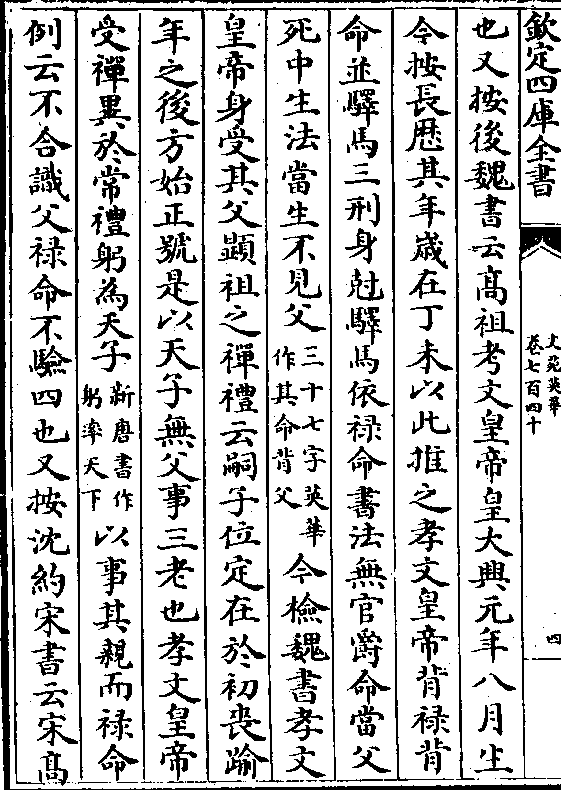 欽定四庫全書
文苑英華
卷七百四十
四
也又按後魏書云高祖考文皇帝皇大興元年八月生
今按長厯其年歲在丁未以此推之孝文皇帝背禄背
命並驛馬三刑身尅驛馬依禄命書法無官爵命當父
死中生法當生不見父三十七字英華作其命背父今檢魏書孝文
皇帝身受其父顯祖之禪禮云嗣子位定在於初喪踰
年之後方始正號是以天子無父事三老也孝文皇帝
受禪異於常禮躬為天子新唐書作躬率天下以事其親而禄命
例云不合識父禄命不驗四也又按沈約宋書云宋髙